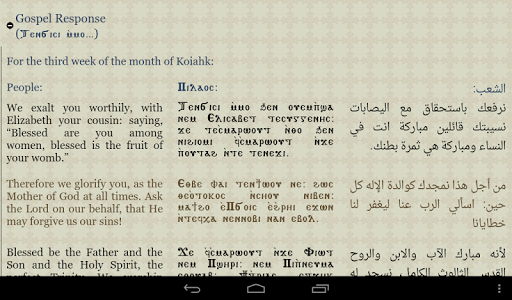 Gospel Response
(Ⲧⲉⲛϭⲓⲥⲓ ⲙ̀ⲙⲟ...)
For the third week of the month of Koiahk:
People:
Ⲡⲓⲗⲁⲟⲥ:
الشعب:
We exalt you worthily, with
Elizabeth your cousin: saying,
"Blessed are you among
women, blessed is the fruit of
your womb."
Ⲧⲉⲛϭⲓⲥⲓ ⲙ̀ⲙⲟ ϧⲉⲛ ⲟⲩⲉⲙⲡϣⲁ
ⲛⲉⲙ Ⲉⲗⲓⲥⲁⲃⲉⲧ ⲧⲉⲥⲩⲅⲅⲉⲛⲏⲥ:
ϫⲉ ⲧⲉⲥⲙⲁⲣⲱⲟⲩⲧ ⲛ̀ⲑⲟ ϧⲉⲛ
ⲛⲓϩⲓⲟⲙⲓ ϥ̀ⲥⲙⲁⲣⲱⲟⲩⲧ ⲛ̀ϫⲉ
ⲡⲟⲩⲧⲁϩ ⲛ̀ⲧⲉ ⲧⲉⲛⲉϫⲓ.
نرفعك باستحقاق مع اليصابات
نسيبتك قائلين مباركة انت في
النساء ومباركة هي ثمرة بطنك.
Therefore we glorify you, as the
Mother of God at all times. Ask
the Lord on our behalf, that He
may forgive us our sins!
Ⲉⲑⲃⲉ ⲫⲁⲓ ⲧⲉⲛϯⲱⲟⲩ ⲛⲉ: ϩⲱⲥ
ⲑⲉⲟⲧⲟⲕⲟⲥ ⲛ̀ⲥⲏⲟⲩ ⲛⲓⲃⲉⲛ:
ⲙⲁϯϩⲟ ⲉ̀Ⲡϭⲟⲓⲥ ⲉ̀ϩⲣⲏⲓ ⲉϫⲱⲛ
ⲛ̀ⲧⲉϥⲭⲁ ⲛⲉⲛⲛⲟⲃⲓ ⲛⲁⲛ ⲉⲃⲟⲗ.
من أجل هذا نمجدك كوالدة الإله كل
حين: اسألي الرب عنا ليغفر لنا
خطايانا
Blessed be the Father and the
Son and the Holy Spirit, the
perfect Trinity. We worship
Ϫⲉ ϥ̀ⲥⲙⲁⲣⲱⲟⲩⲧ ⲛ̀ϫⲉ Ⲫⲓⲱⲧ
ⲛⲉⲙ Ⲡϣⲏⲣⲓ: ⲛⲉⲙ Ⲡⲓⲡⲛⲉⲩⲙⲁ
لأنه مبارك الآب والابن والروح
القدس الثالوث الكامل نسجد له